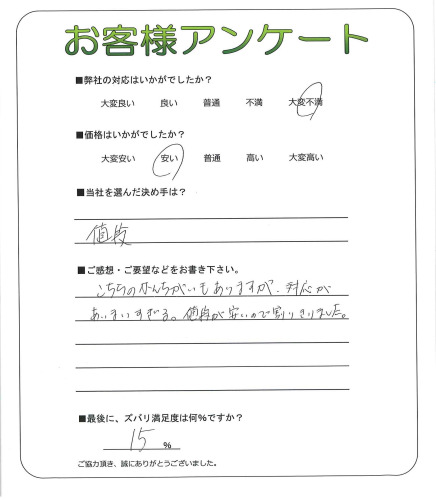 お客様アンケート
■弊社の対応はいかがでしたか？
大変良い 良い 普通 不満 大変不満
■価格はいかがでしたか？
大変安い 安い 普通 高い 大変高い
■当社を選んだ決め手は？
値段
■ご感想・ご要望などをお書き下さい。
こちらのかんちがいもありますが、対応が
あいまいすぎる。値段が安いので割りきりました。
■最後に、ズバリ満足度は何％ですか？
15 %
ご協力頂き、誠にありがとうございました。